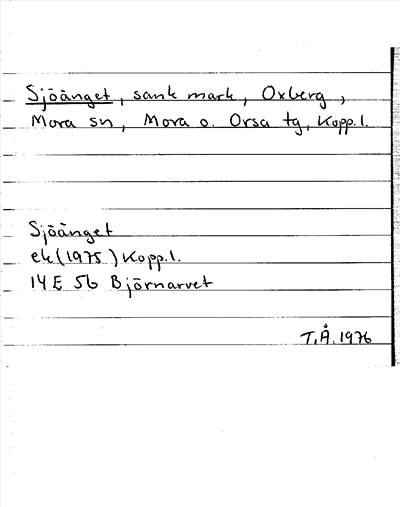 Sjöänget, sank mark, Oxberg,
Mora sn, Mora o. Orsa tg, Kopp.l.
Sjöänget
ek (1975) Kopp.l.
14E 5b Björnarvet
T.Å. 1976